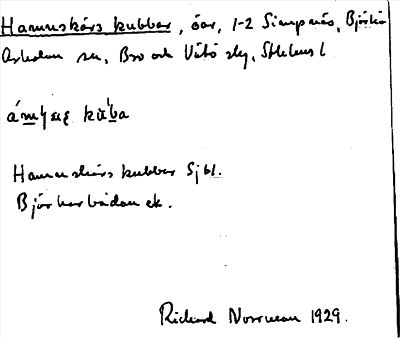 Hamnskärs kubbar, öar, 1-2 Simpnäs, Björkö
Arholma sn, Bro och Vätö slg, Sthlms l
kubba
Hamnskärs kubbar Sjkt.
Björkarbådan ek.
Richard Norrman 1929.